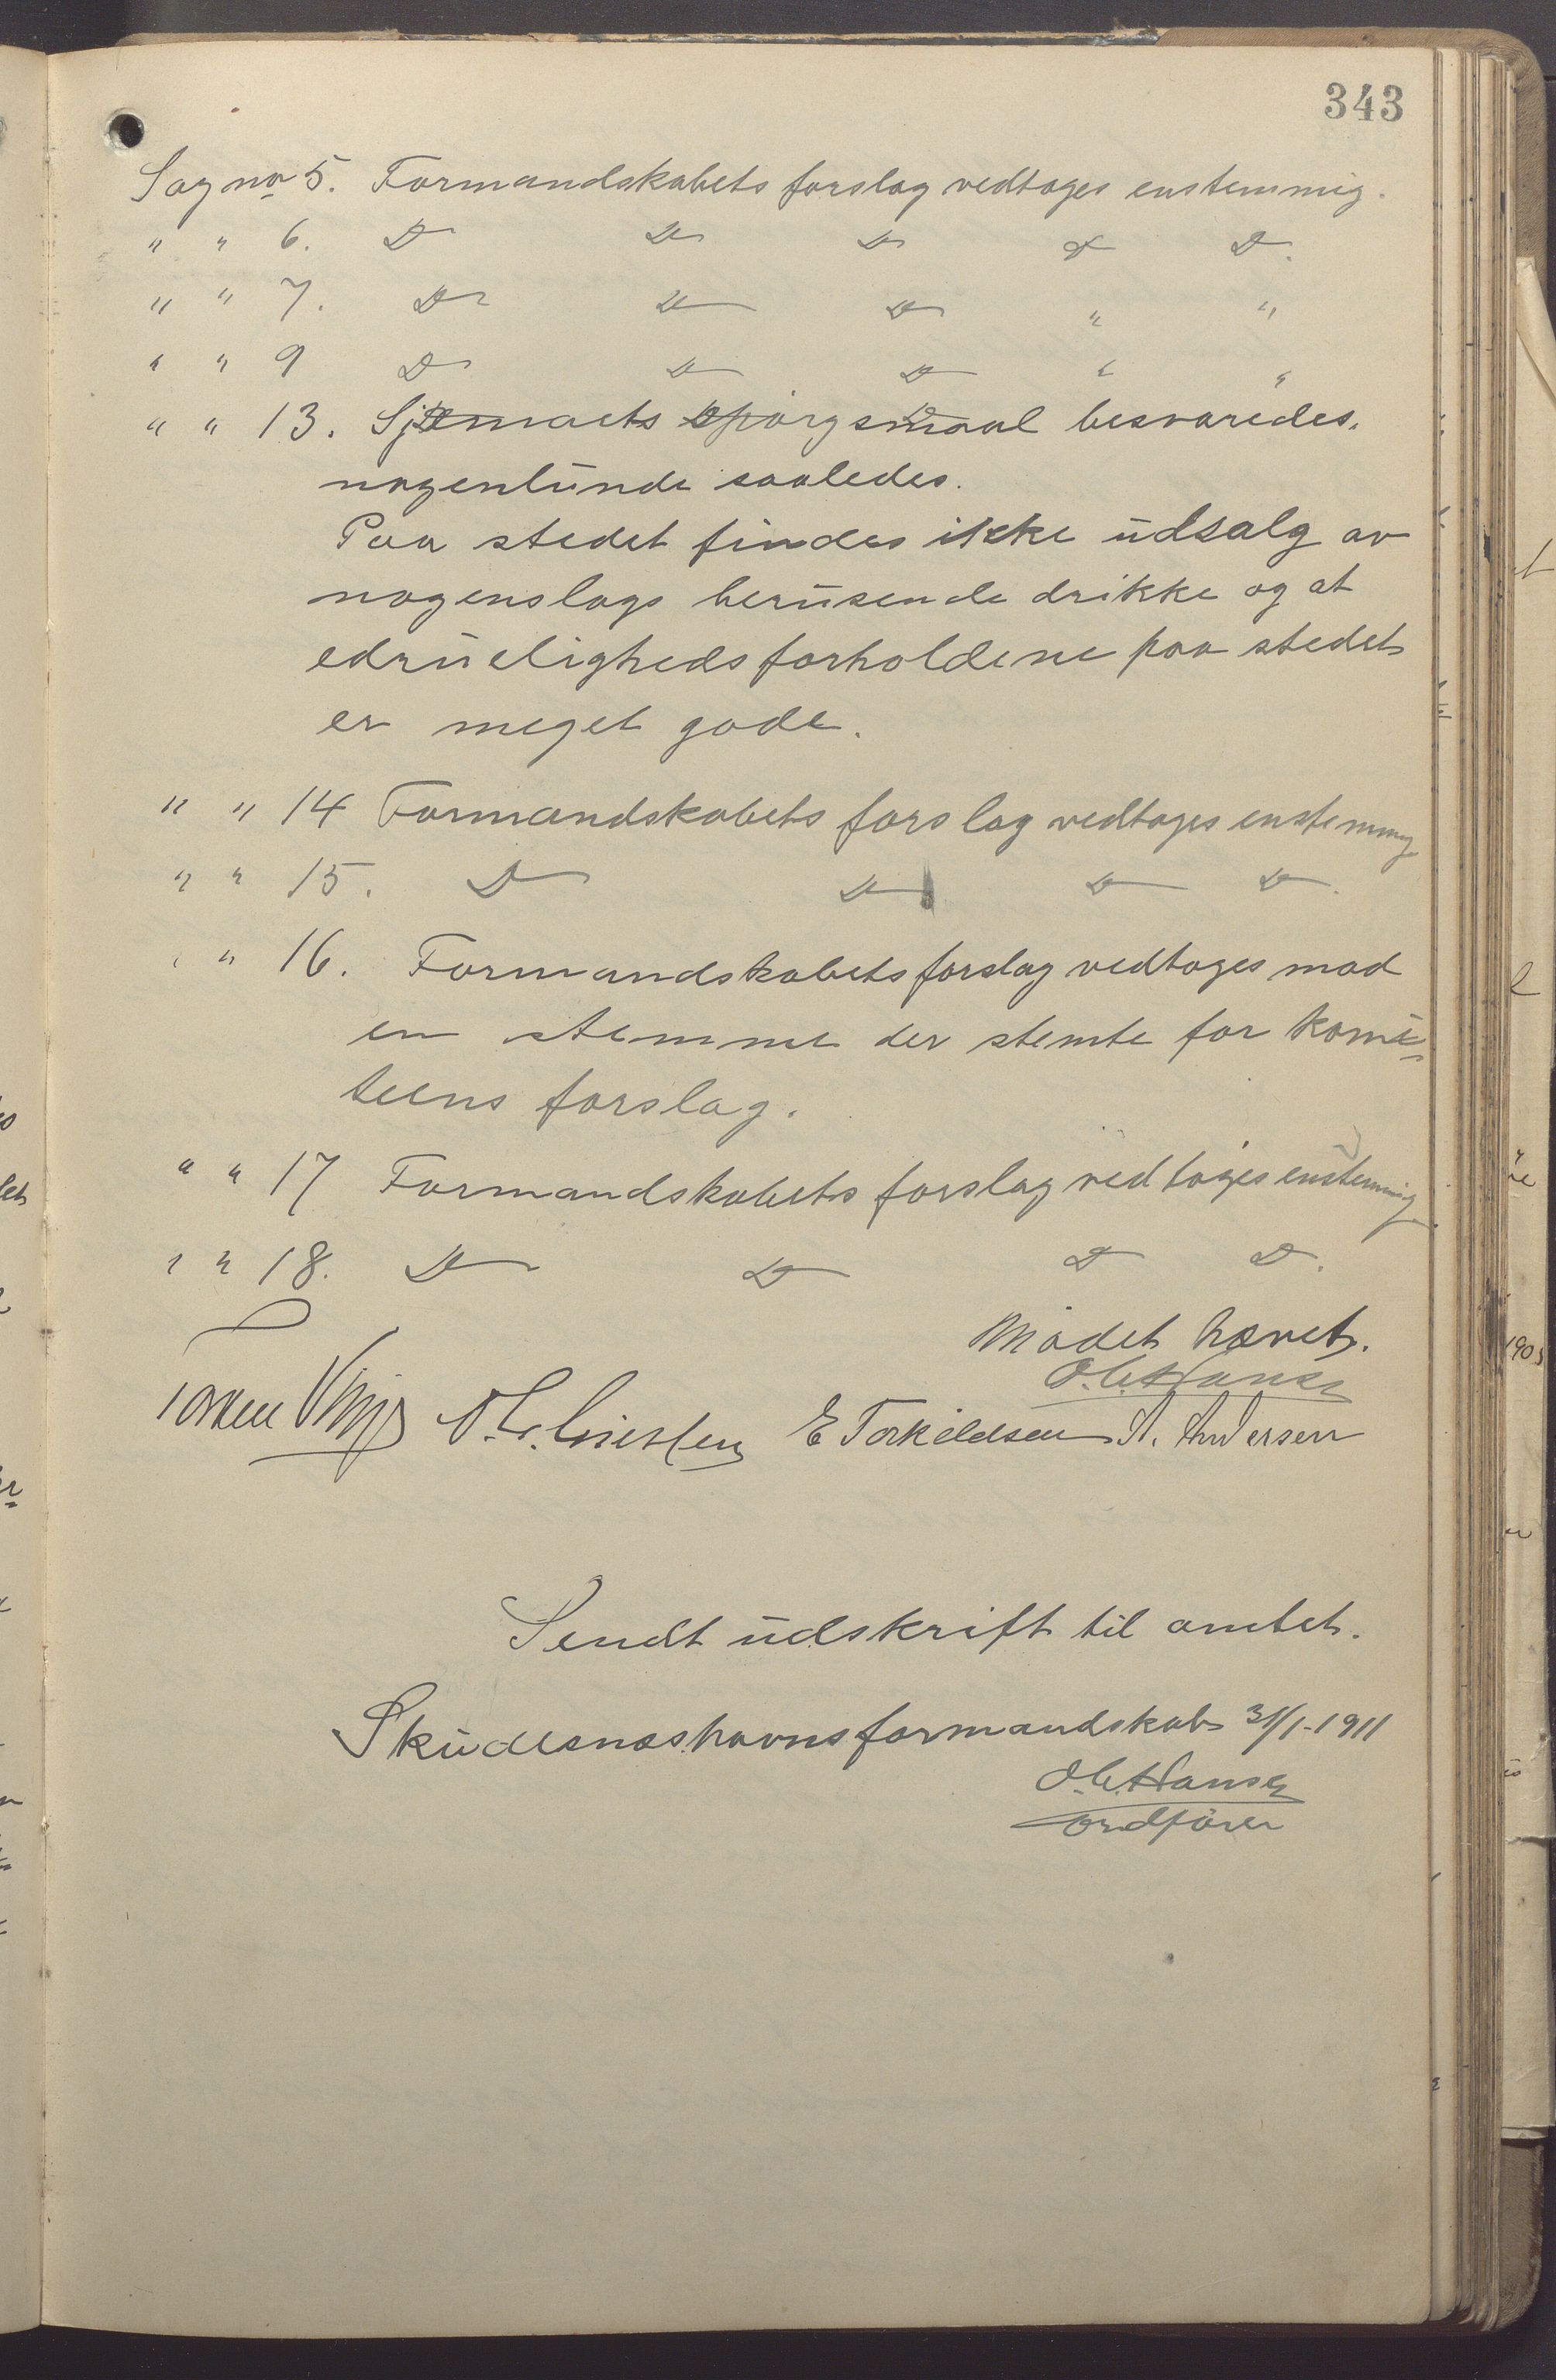 343
Sag no 5. Formandskabets forslag vedtages enstemmig.
" " 6. Do Do Do Do Do.
" " 7. Do Do Do " "
" " 9 Do Do Do " "
" " 13. spørgsmaal besvaredes.
nogenlunde saaledes.
Paa stedet findes ikke udsalg av
nogenslags berusende drikke og at
edrueligheds forholdene paa stedet
er meget gode.
" " 14 Formandskabets forslag vedtages enstemmig
" " 15. Do Do Do Do.
" " 16. Formandskabets forslag vedtages mod
en stemme der stemte for komi-
teens forslag.
" " 17 Formandskabets forslag vedtages enstemmig
" " 18. Do Do Do Do.
Mødet hævet.
O.C. Hansen
E Torkildsen A. Andersen
Sendt udskrift til amtet.
Skudesneshavns formandskab 31/1-1911
O.C. Hansen
ordfører